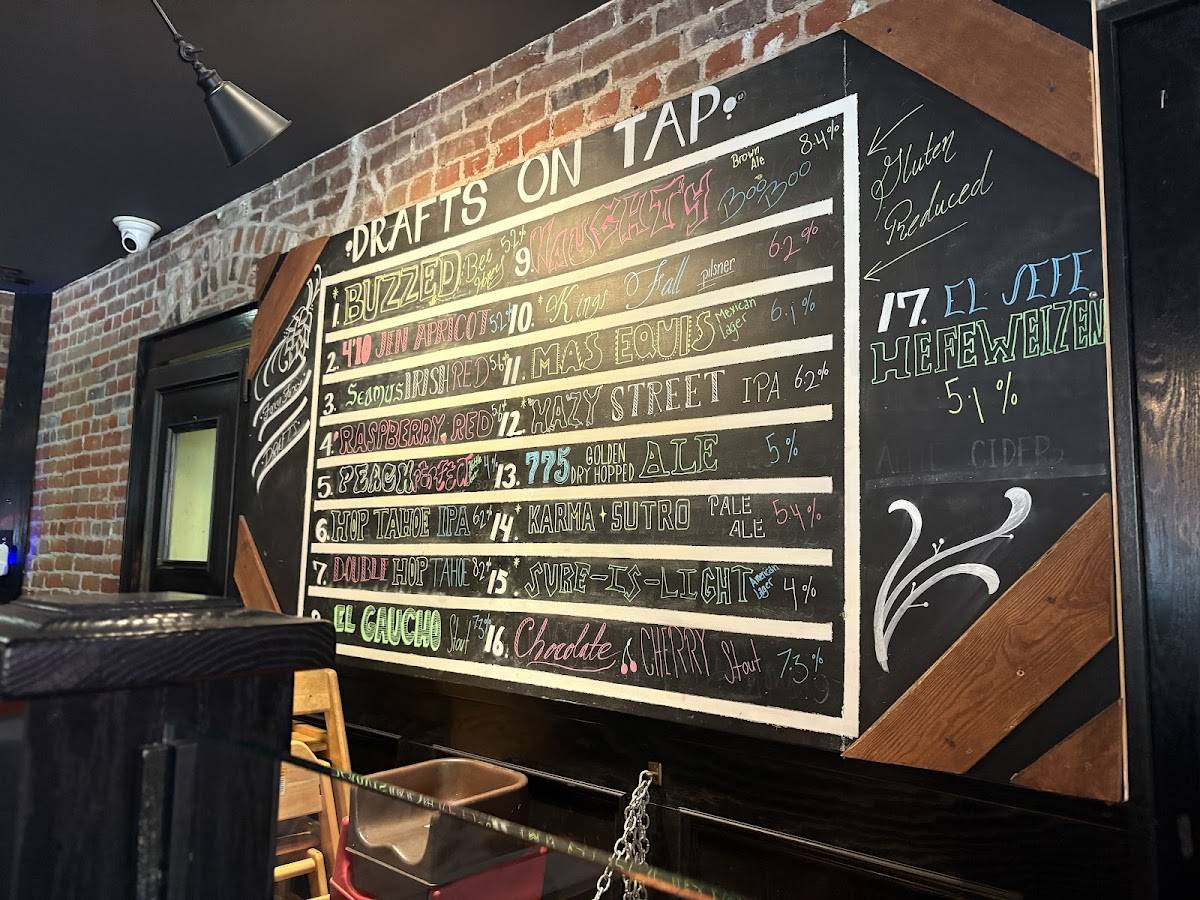 DRAFTS ON TAP:
1. BUZZED Bee 5.2%
2. 4'10 JEN APRICOT 5.2%
3. SEAMUS IRISH RED 5.6%
4. RASPBERRY RED 5.6%
5. PEACH 4%
6. HOP TAHOE IPA 6.2%
7. DOUBLE HOP TAHOE 8.2%
EL GAUCHO Stout 7.3%
9. NAUGHTY BOO BOO Brown Ale 8.4%
10. Kings Fall pilsner 6.2%
11. MAS EQUIS Mexican lager 6.1%
12. HAZY STREET IPA 6.2%
13. 775 GOLDEN DRY HOPPED ALE 5%
14. KARMA SUTRO PALE ALE 5.4%
15. SURE-IS-LIGHT American Lager 4%
16. Chocolate CHERRY Stout 7.3%
Gluten
Reduced
17. EL JEFE
HEFEWEIZEN
5.1%
CIDER
DRAFTS